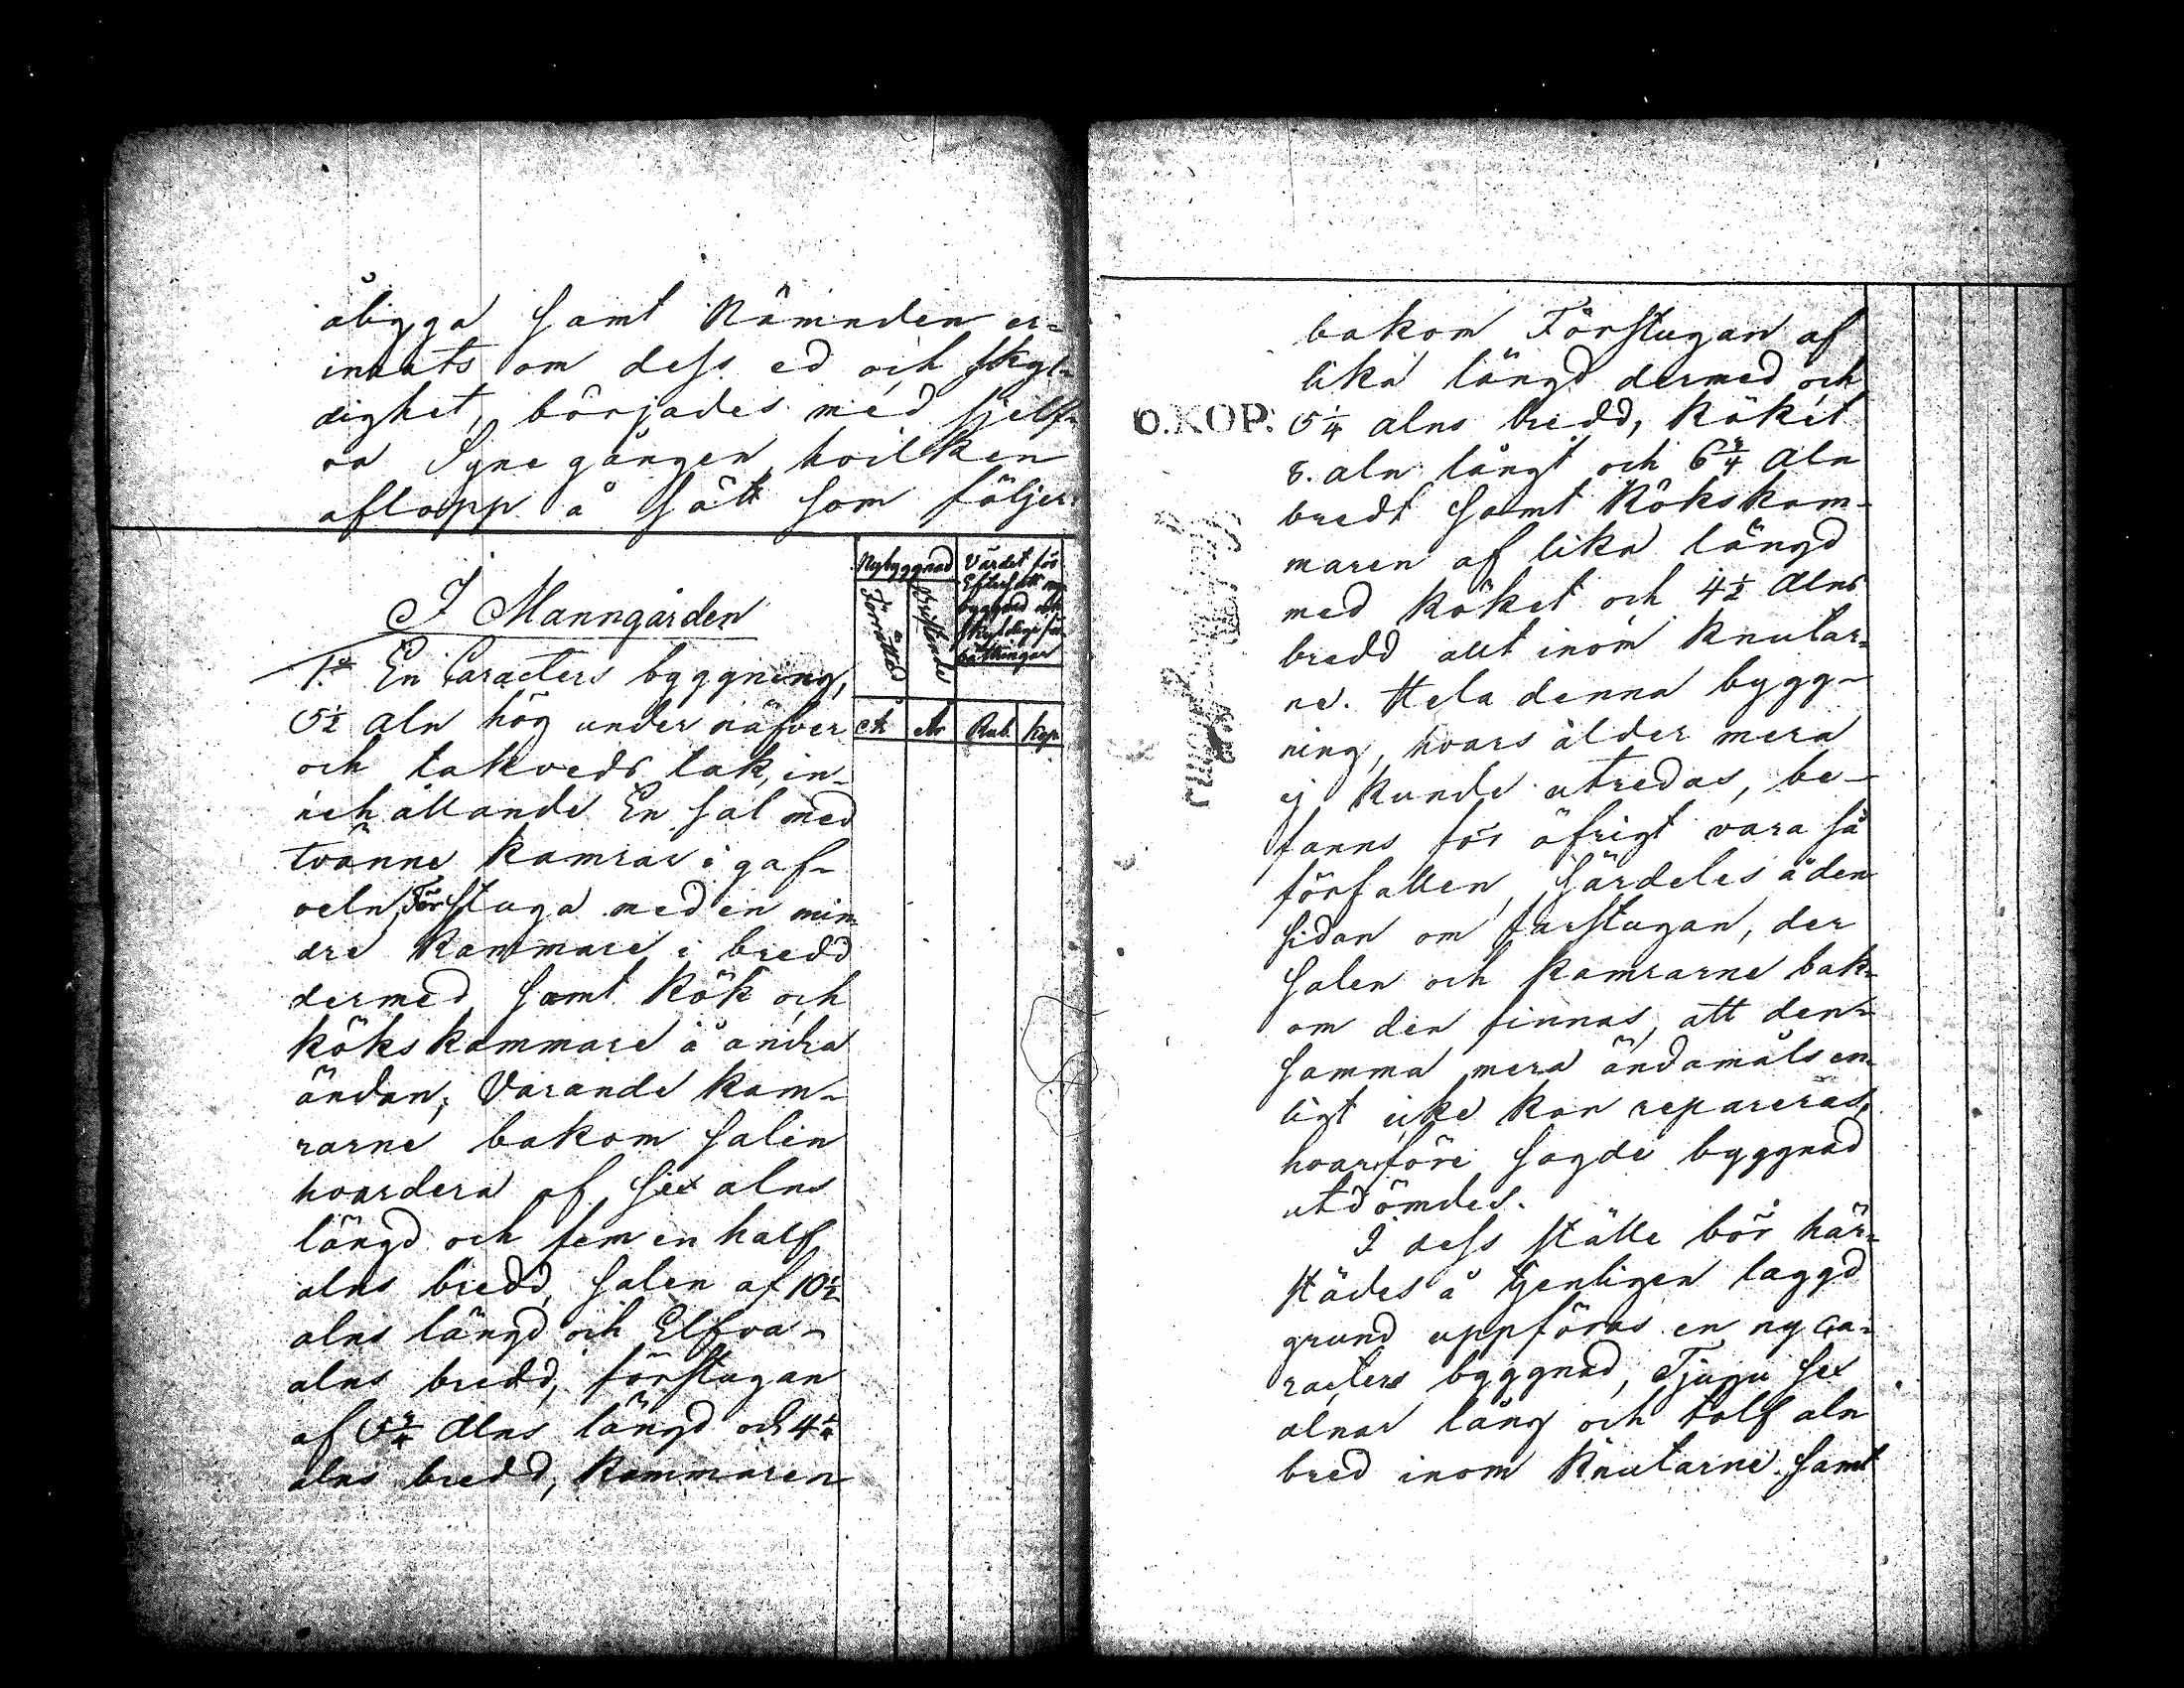 åligga samt Nämnden er-
inrats om dess ed och skyl-
dighet, börjades med sjelf-
va Synegången, hvilken
aflopp å sätt som följer.
Nybyggnad
Förrättad
Bristande
Värdet för
Eftersatt ny
byggnad och
skyldige för
bättringar
Rub. Kop
I Manngården
1:o En Caracters byggning,
5½ aln hög under näfver
och takveds tak, in-
nehållande En sal med
tvänne kamrar i gaf-
veln, Förstuga med en min-
dre Kammare i bredd
dermed samt Kök och
kökskammare å andra
ändan; Varande kam-
rarne bakom salen
hvardera af sex alns
längd och fem en half
alns bredd, salen af 10½
alns längd och Elfva
alns bredd, förstugan
af 5¾ Alns längd och 4½
alns bredd, Kammaren
bakom Förstugan af
lika längd dermed och
O.KOP.
5¼ alns bredd, Köket
8. aln långt och 6¾ Aln
bredt samt Kökskam-
maren af lika längd
med köket och 4½ Alns
bredd allt inom knutar-
ne. Hela denna bygg-
ning, hvars ålder mera
ej kunde utredas, be-
fanns för öfrigt vara så
förfallen, särdeles å den
sidan om farstugan, der
salen och kamrarne bak-
om den finnas, att den-
samma mera ändamålsen-
ligt icke kan repareras,
hvarföre sagde byggnad
utdömdes.
I dess ställe bör här-
städes å tjenligen laggd
grund uppföras en ny Ca-
racters byggnad, Tjugu sex
alnar lång och tolf aln
bred inom Knutarne samt